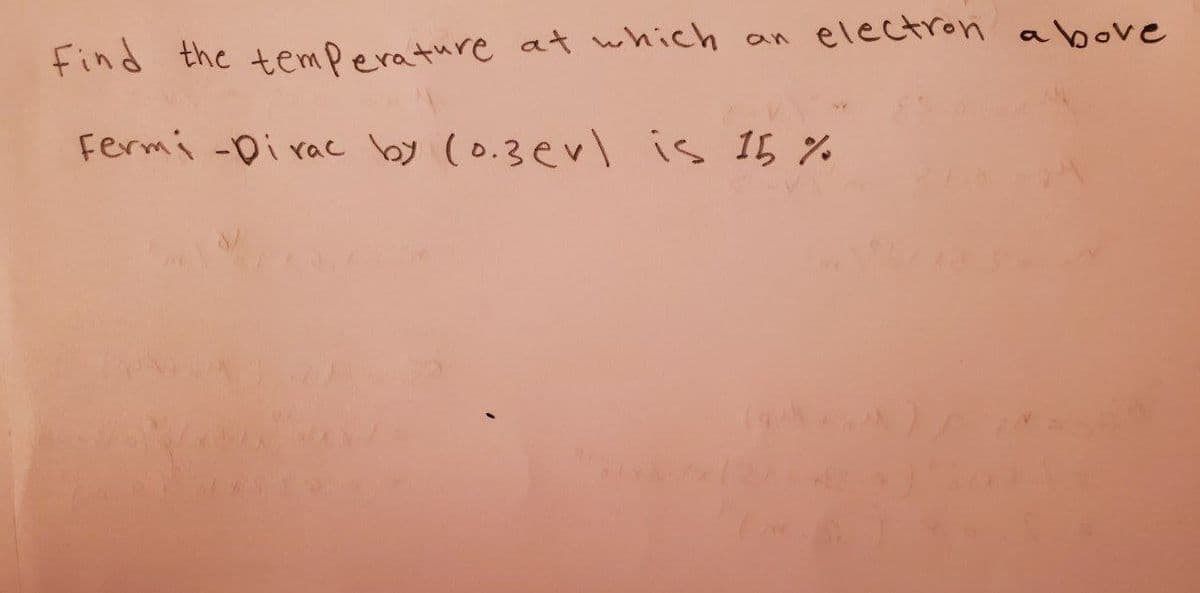 Find the temperature at which an electron above
Fermi -Dirac by (0.3ev) is 15 %